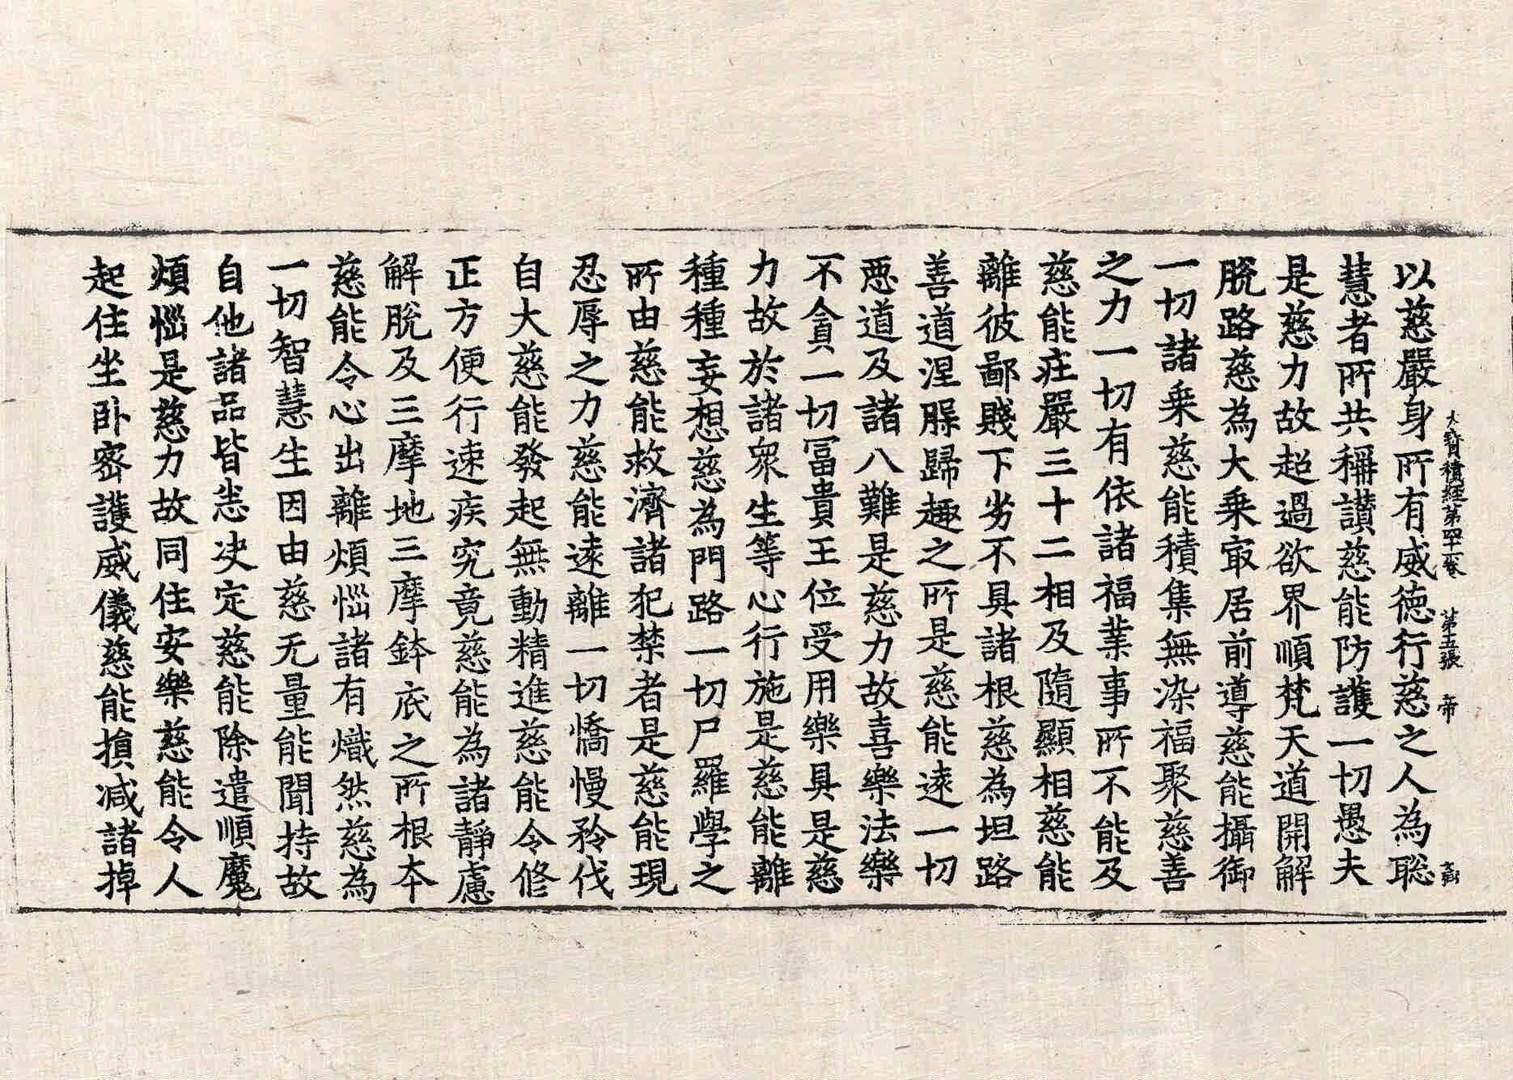 以慈嚴身所有威德行慈之人為聡
大寶積經第四十一卷 第五張 帝
慧者所共稱讃慈能防護一切愚夫
是慈力故超過欲界順梵天道開解
脫路慈為大乗㝡居前導慈能攝御
一切諸乗慈能積集無染福聚慈善
之力一切有依諸福業事所不能及
慈能庄嚴三十二相及隨顯相慈能
離彼鄙賤下劣不具諸根慈為坦路
善道涅槃歸趣之所是慈能遠一切
惡道及諸八難是慈力故喜樂法樂
不貪一切冨貴王位受用樂具是慈
力故於諸衆生等心行施是慈能離
種種妄想慈為門路一切尸羅學之
所由慈能救濟諸犯禁者是慈能現
忍辱之力慈能遠離一切憍慢矜伐
自大慈能發起無動精進慈能令修
正方便行速疾究竟慈能為諸靜慮
解脫及三摩地三摩鉢底之所根本
慈能令心出離煩惱諸有熾然慈為
一切智慧生因由慈无量能聞持故
自他諸品皆悉决定慈能除遣順魔
煩惱是慈力故同住安樂慈能令人
起住坐卧密護威儀慈能損减諸掉